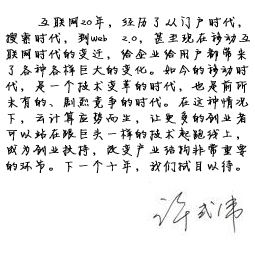 互联网20年，经历了从门户时代，
搜索时代，到web 2.0，甚至现在移动互
联网时代的变迁，给企业给用户都带来
了各种各样巨大的变化。如今的移动时
代，是一个技术变革的时代，也是前所
未有的、剧烈竞争的时代。在这种情况
下，云计算应势而生，让更多的创业者
可以站在跟巨头一样的技术起跑线上，
成为创业扶持，改变产业结构非常重要
的环节。下一个十年，我们拭目以待。
许式伟